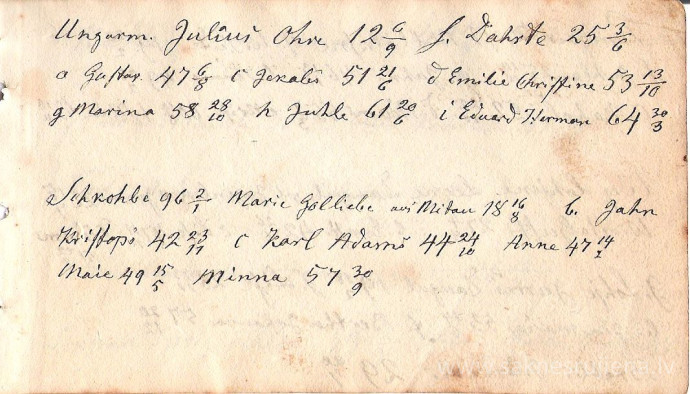 Ungurm. Julius Ohre 12 6/9 f. Dahrte 25 3/6
a Gustav. 47 6/8 c Jekabs 51 21/6 d Emilie Christine 53 13/10
g Marina 58 28/10 h Juhle 61 20/6 i Eduard Herman 64 30/3
Schkohbe 96 2/1 Marie Gottliebe aus Mitau 18 16/8 b. Jahn
Kristaps 42 23/11 c Karl Adams 44 24/10 Anne 47 14/1
Maie 49 15/5 Minna 57 30/9